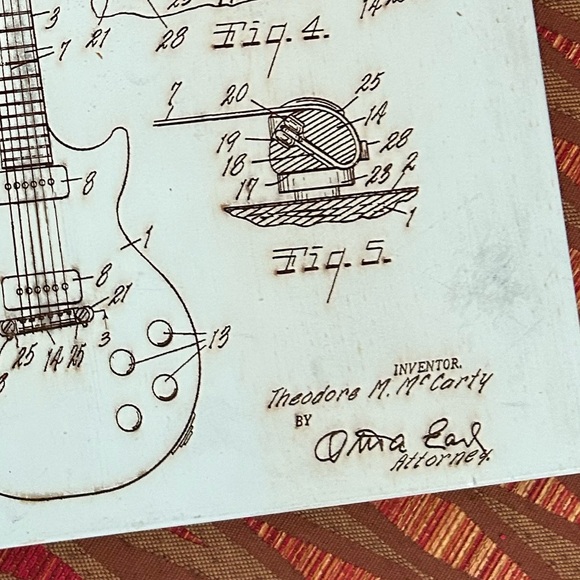 3
7
21
28
Fig. 4.
8
1
8
21
3
25 14 25
13
7
20
25
14
19
18
28
17
23
2
1
Fig. 5.
INVENTOR.
Theodore M. McCarty
BY
Attorney.